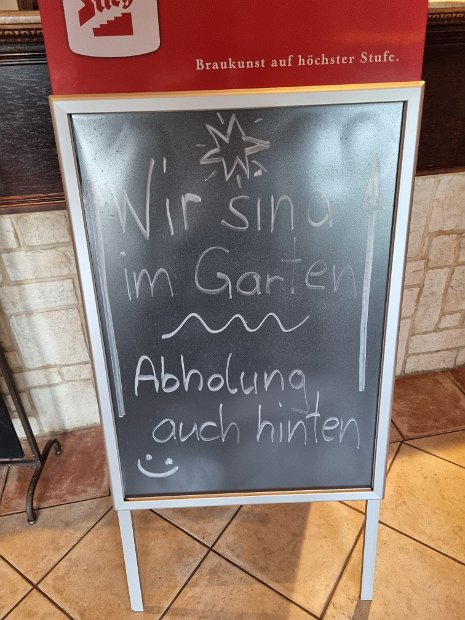 Braukunst auf höchster Stufe.
Wir sind
im Garten
Abholung
auch hinten